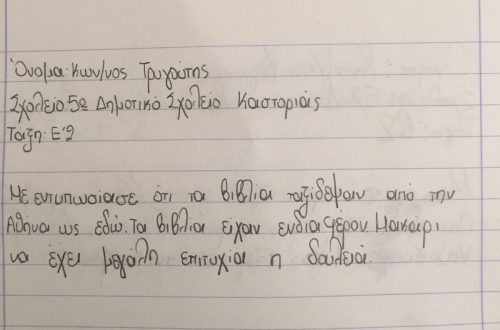 Όνομα: Κων/νος Τρυγώτης
Σχολείο: 5ο Δημοτικό Σχολείο Καστοριάς
Ταξη: Ε'2
Με εντυπωσίασε ότι τα βιβλια ταξίδεψαν από την
Αθήνα ως εδώ. Τα βιβλια είχαν ενδιαφέρον. Μακαρι
να έχει μεγάλη επιτυχία η δουλειά.